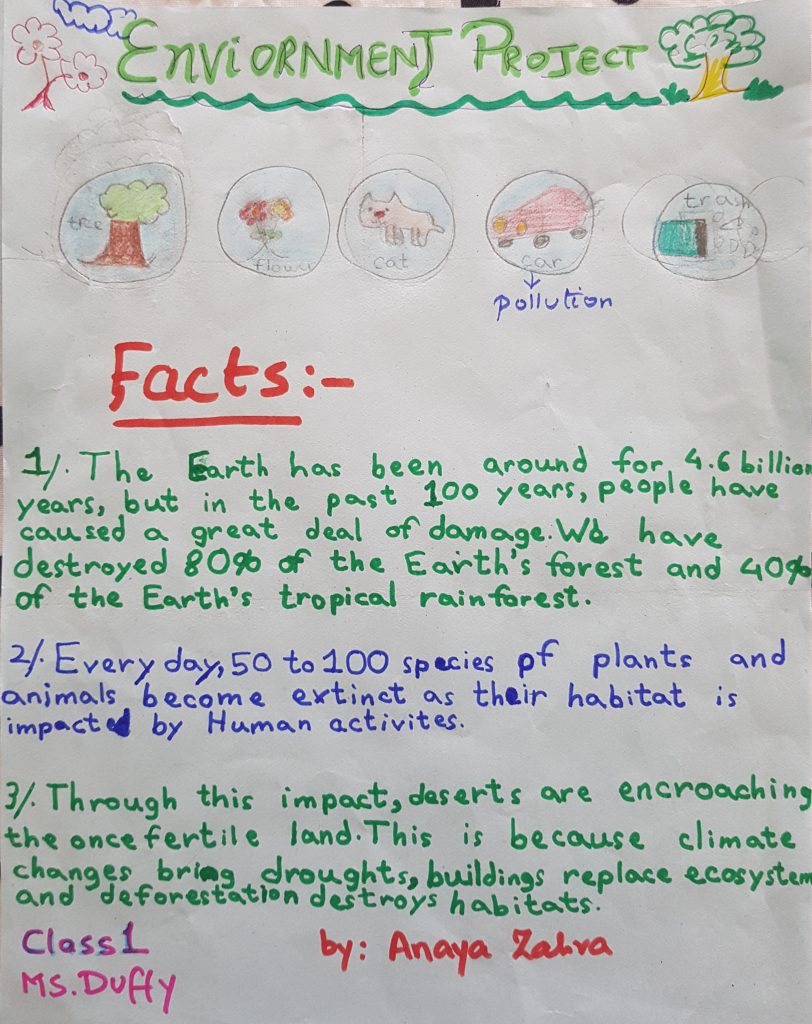 ENVIORNMENT PROJECT
tree
flower
cat
car
trash
pollution
Facts:-
1/. The Earth has been around for 4.6 billion
years, but in the past 100 years, people have
caused a great deal of damage. We have
destroyed 80% of the Earth's forest and 40%
of the Earth's tropical rainforest.
2/. Every day, 50 to 100 species pf plants and
animals become extinct as their habitat is
impacted by Human activites.
3/. Through this impact, deserts are encroaching
the once fertile land. This is because climate
changes bring droughts, buildings replace ecosystem
and deforestation destroys habitats.
Class 1
by: Anaya Zahra
MS. Duffy